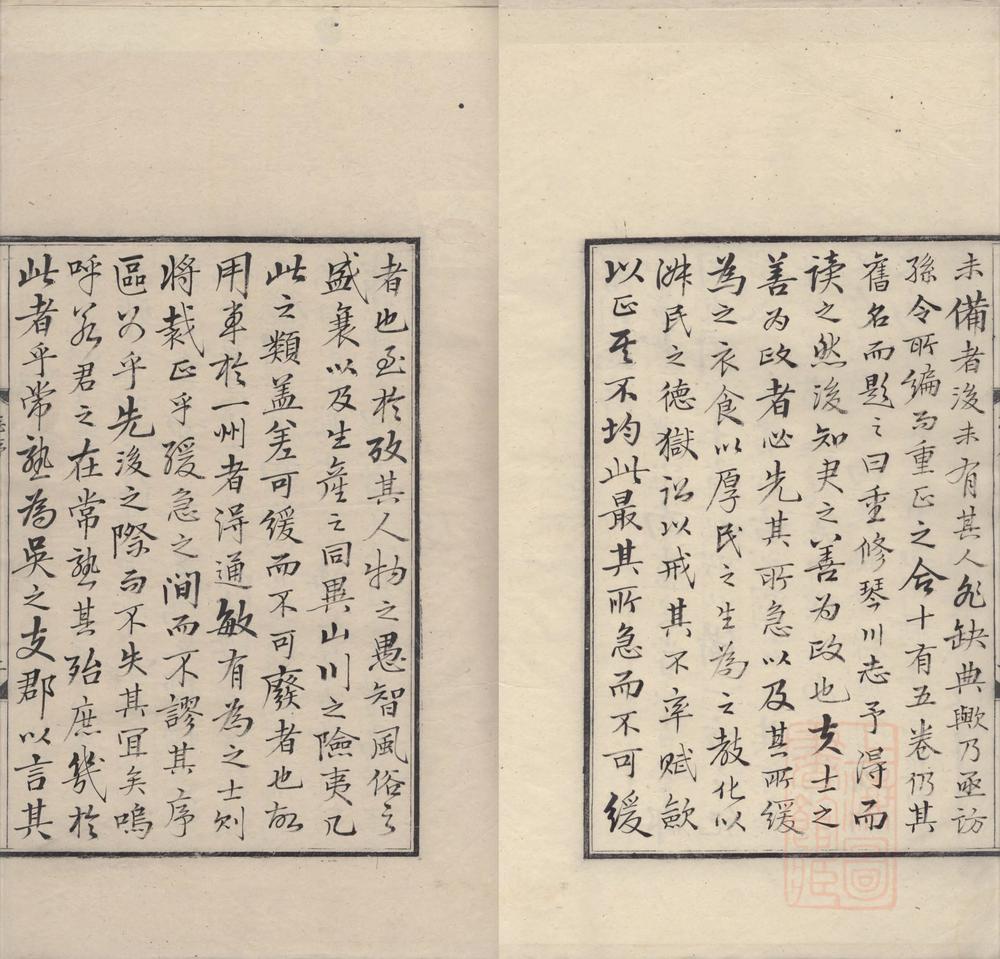 未備者後未有其人非缺典歟乃亟訪
孫令所編而重正之合十有五卷仍其
舊名而題之曰重修琴川志予得而
读之然後知尹之善为政也夫士之
善为政者必先其所急以及其所缓
為之衣食以厚民之生為之教化以
淋民之德獄訟以戒其不率赋歛
以正其不均此最其所急而不可緩
者也至於攷其人物之愚智風俗之
盛衰以及生産之同異山川之險夷凡
此之類盖差可缓而不可廢者也故
用事於一州者得通敏有為之士則
将裁正乎緩急之间而不謬其序
區分乎先後之際而不失其宜矣嗚
呼若君之在常熟其殆庶幾於
此者乎常熟為吳之支郡以言其